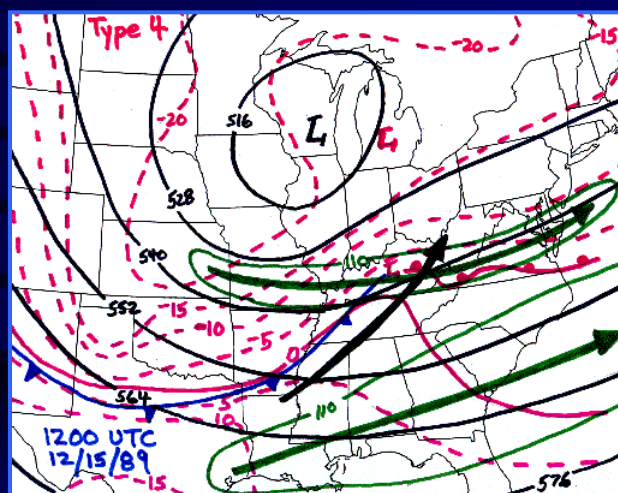 Type 4
-20
-15
516
L
L
-20
528
540
110
L
552
-15
-10
-5
0
564
5
10
110
1200 UTC
12/15/89
15
576